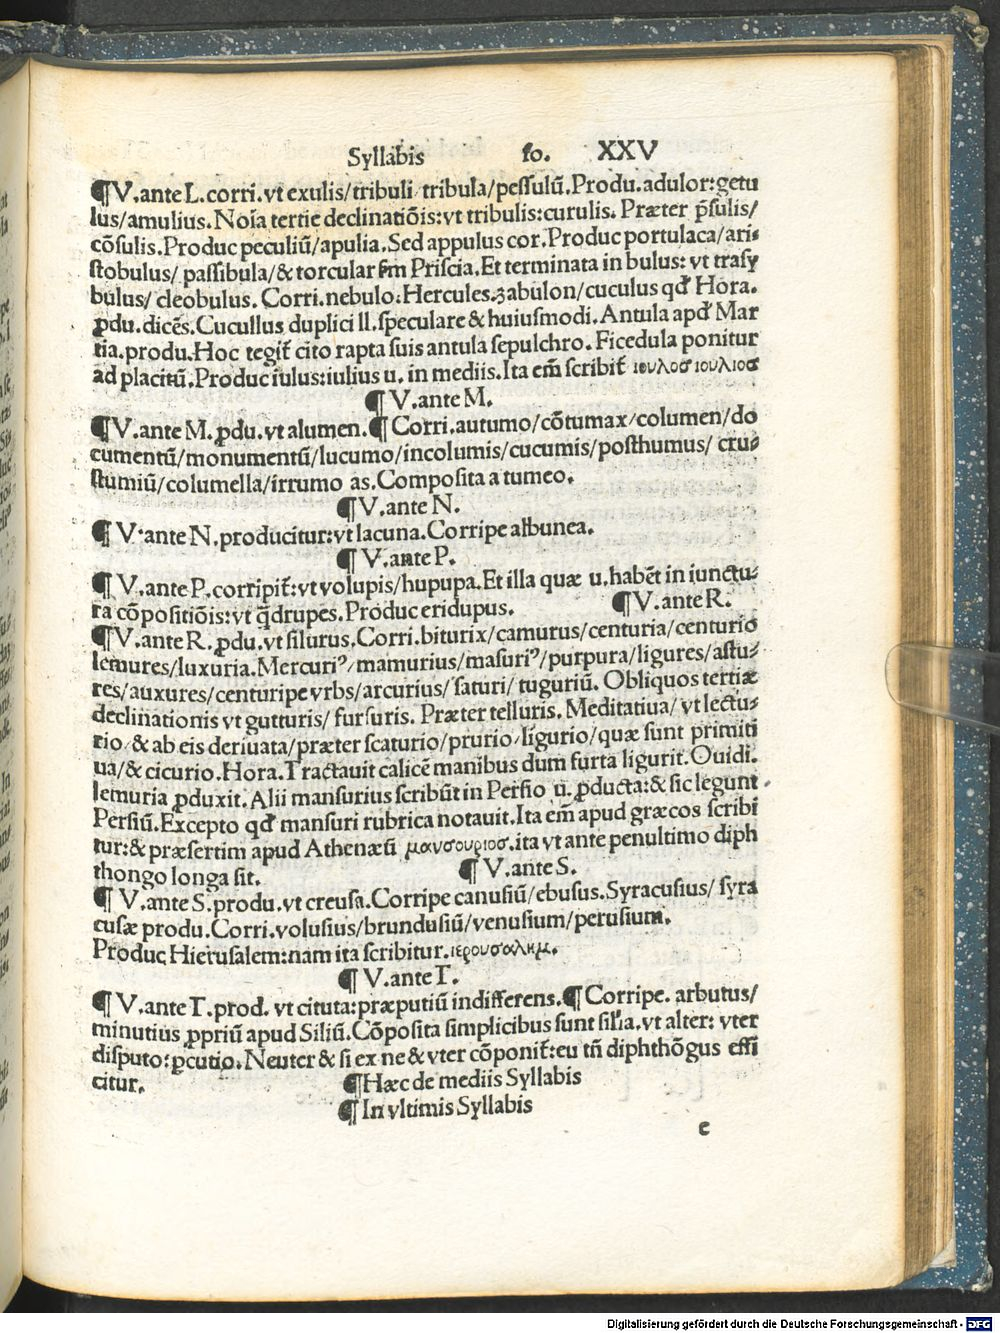 Syllabis fo. XXV
¶V.ante L.corri.vt exulis/tribuli/tribula/pessulū.Produ.adulor:getu
lus/amulius.Noīa tertie declinatiōis:vt tribulis:curulis.Præter p̄sulis/
cōsulis.Produc peculiū/apulia.Sed appulus cor.Produc portulaca/ari⸗
stobulus/passibula/&torcular fm Priscia.Et terminata in bulus:vt trasy
bulus/cleobulus.Corri.nebulo:Hercules.zabulon/cuculus qđ Hora.
ꝓdu.dicēs.Cucullus duplici ll.speculare & huiusmodi.Antula apđ Mar
tia.produ.Hoc tegit̄ cito rapta suis antula sepulchro.Ficedula ponitur
ad placitū.Produc iulus:iulius u.in mediis.Ita em̄ scribit̄ ιουλοσ ιουλιοσ
¶V.ante M.
¶V.ante M.ꝓdu.vt alumen.¶Corri.autumo/cōtumax/columen/do
cumentū/monumentū/lucumo/incolumis/cucumis/posthumus/cru⸗
stumiū/columella/irrumo as.Composita a tumeo.
¶V.ante N.
¶V.ante N.producitur:vt lacuna.Corripe albunea.
¶V.ante P.
¶V.ante P.corripit̄:vt volupis/hupupa.Et illa quæ u.habēt in iunctu⸗
ra cōpositiōis:vt q̄drupes.Produc eridupus. ¶V.ante R.
¶V.ante R.ꝓdu.vt silurus.Corri.biturix/camurus/centuria/centurio
lemures/luxuria.Mercuriꝰ/mamurius/masuriꝰ/purpura/ligures/astu⸗
res/auxures/centuripe vrbs/arcurius/saturi/tuguriū.Obliquos tertiæ
declinationis vt gutturis/fursuris.Præter telluris.Meditatiua/vt lectu⸗
rio/& ab eis deriuata/præter scaturio/prurio/ligurio/quæ sunt primiti
ua/& cicurio.Hora.Tractauit calicē manibus dum furta ligurit.Ouidi.
lemuria ꝓduxit.Alii mansurius scribūt in Persio u.ꝓducta:& sic legunt
Persiū.Excepto qđ mansuri rubrica notauit.Ita em̄ apud græcos scribi
tur:& præsertim apud Athenæū μανσουριοσ.ita vt ante penultimo diph
thongo longa sit. ¶V.ante S.
¶V.ante S.produ.vt creusa.Corripe canusiū/ebusus.Syracusius/syra
cusæ produ.Corri.volusius/brundusiū/venusium/perusium.
Produc Hierusalem:nam ita scribitur.ιερουσαλημ.
¶V.ante T.
¶V.ante T.prod.vt cituta:præputiū indifferens.¶Corripe.arbutus/
minutius ꝓpriū apud Siliū.Cōposita simplicibus sunt sil'ia.vt alter:vter
disputo:ꝑcutio.Neuter & si ex ne & vter cōponit̄:eu tn̄ diphthōgus effi
citur. ¶Hæc de mediis Syllabis
¶In vltimis Syllabis
e
Digitalisierung gefördert durch die Deutsche Forschungsgemeinschaft - DFG